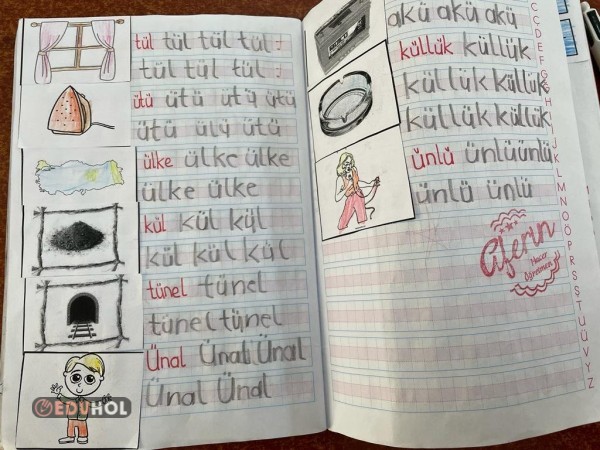 tül tül tül tül
tül tül tül tül
ütü ütü ütü ütü
ütü ütü ütü
ülke ülke ülke
ülke ülke
kül kül kül
kül kül kül kül
tünel tünel
tünel tünel
Ünal Ünal Ünal
Ünal Ünal
EDUHOL
akü akü akü
küllük küllük
küllük küllük
küllük küllük
ünlü ünlüünlü
ünlü ünlü
Aferin
Hacer
Öğretmen
C
Ç
D
E
F
G
Ğ
H
I
İ
J
K
L
M
N
O
Ö
P
R
S
Ş
T
U
Ü
V
Y
Z